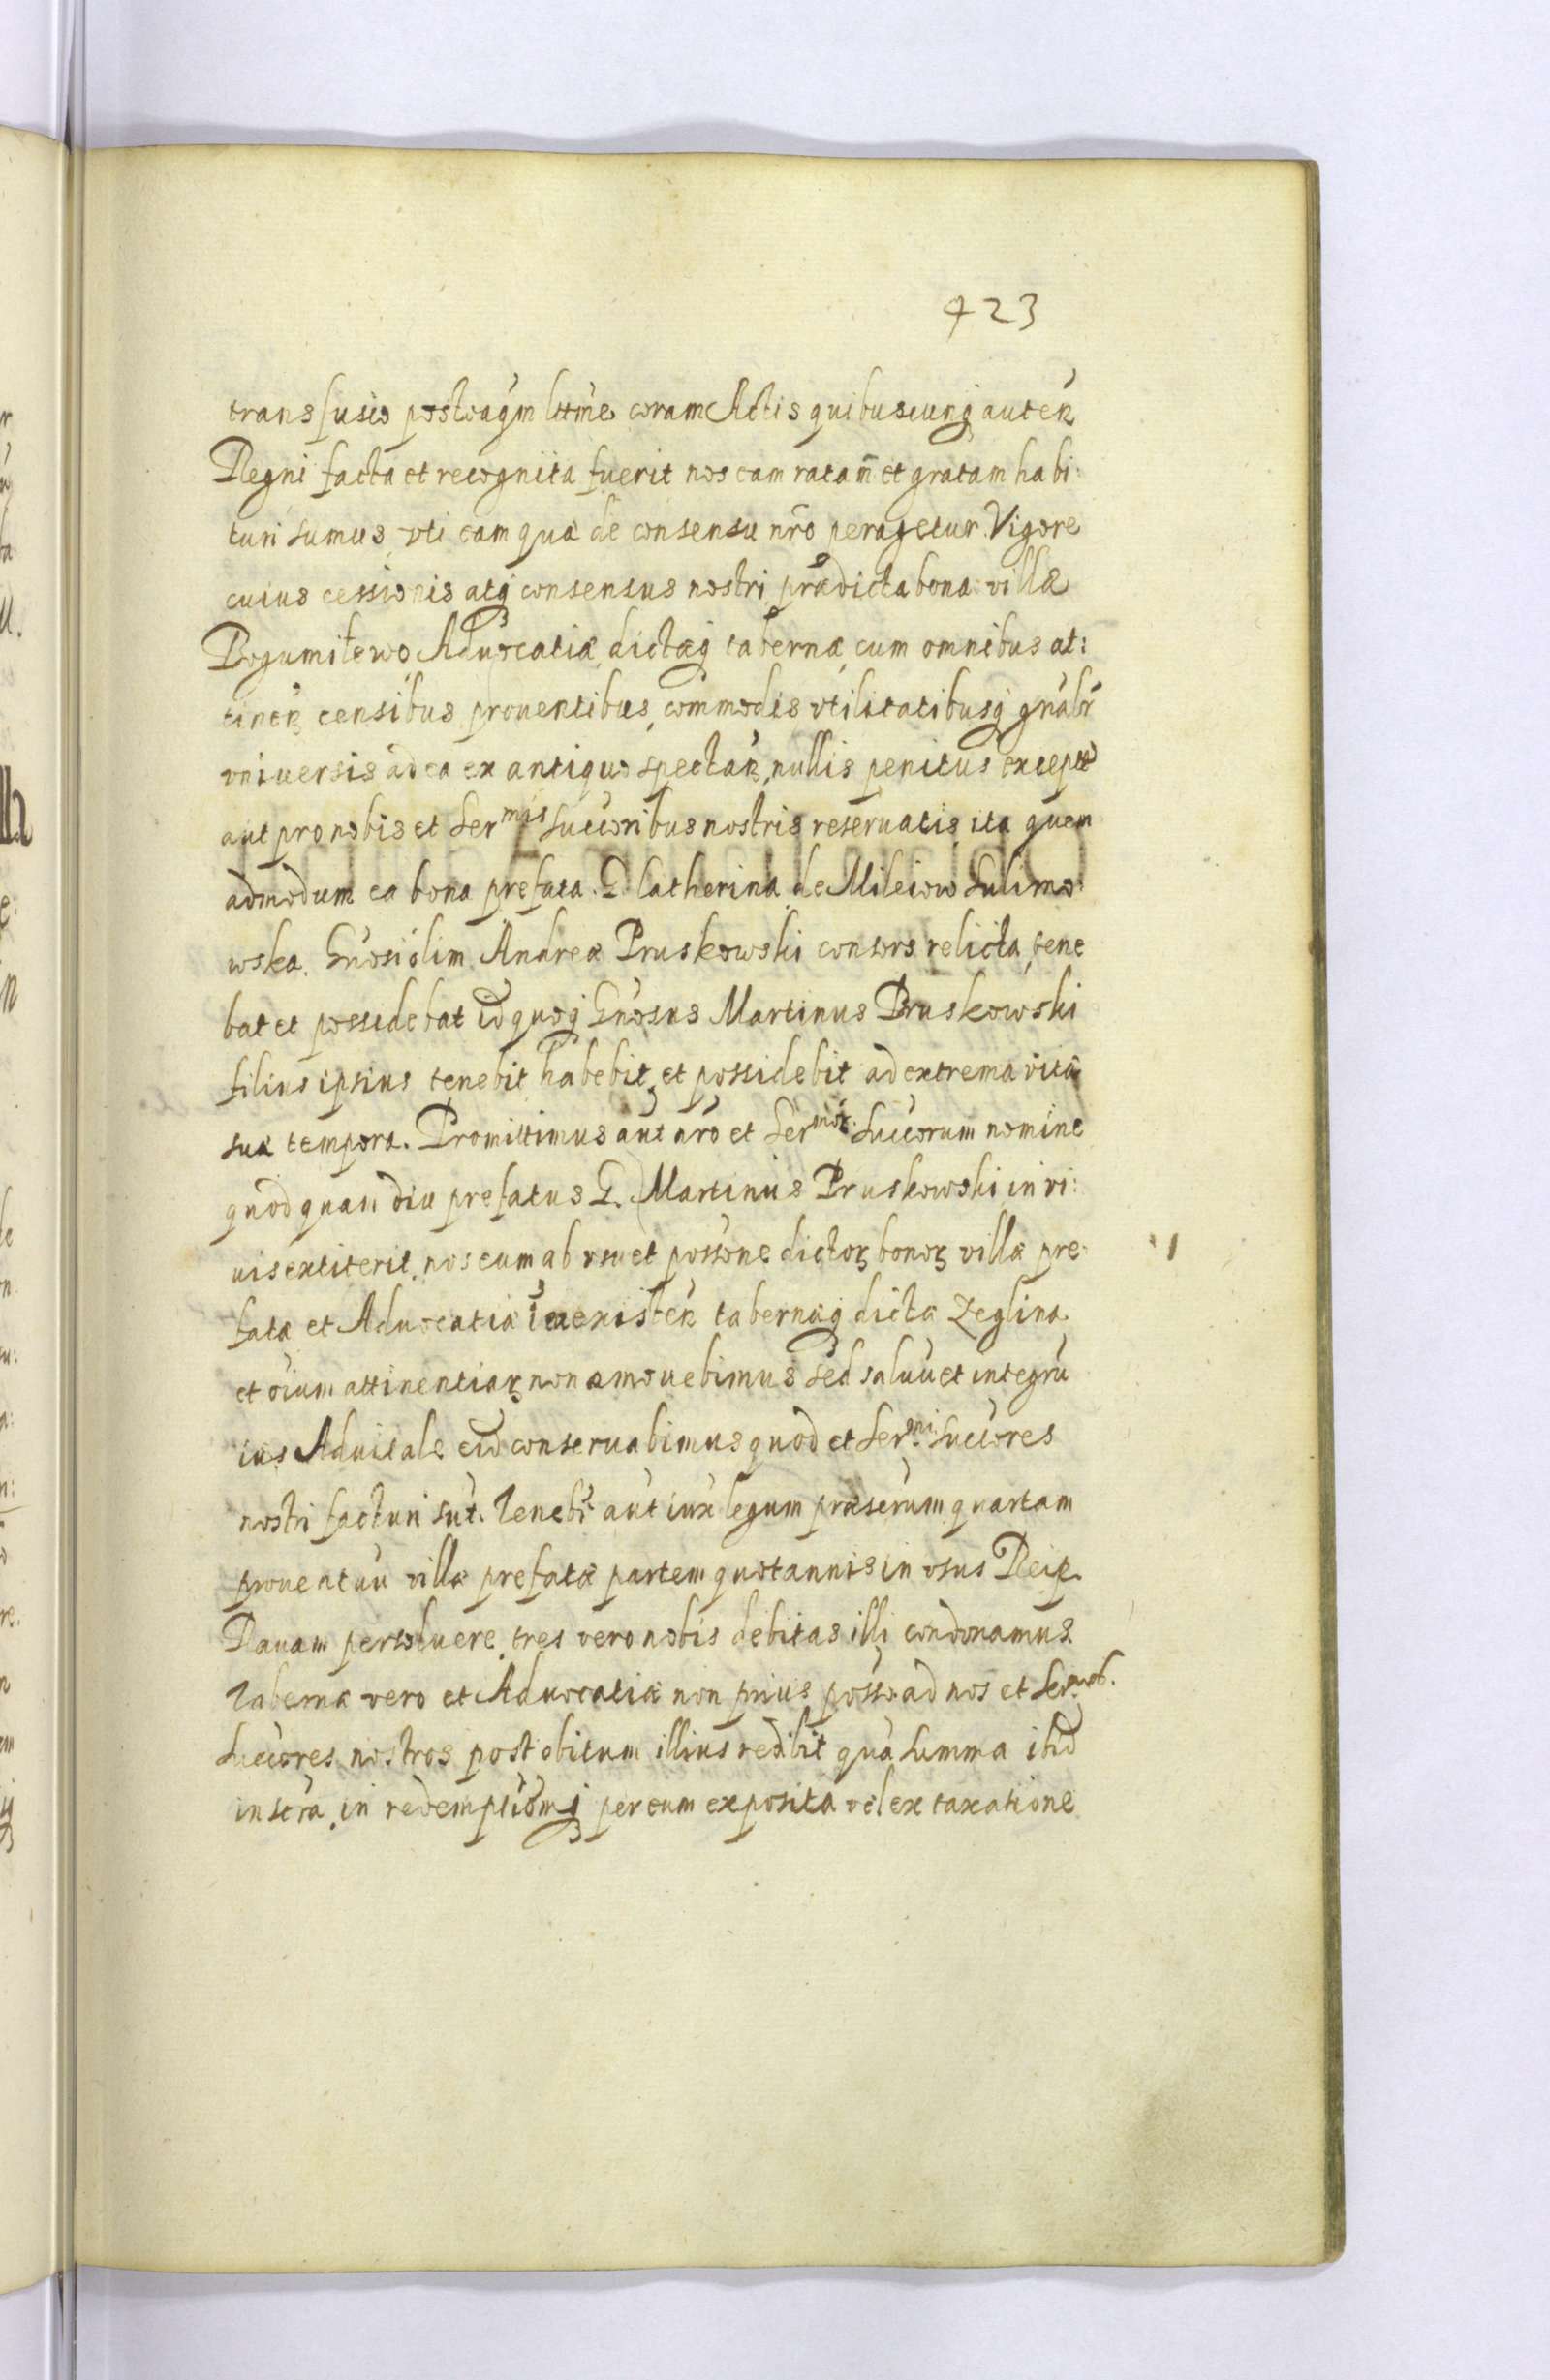 423
transfusio postoaqm lttme coram Actis quibuscunq auten
Regni facta et recognita fuerit nos eam ratam et gratam habi:
turi sumus vti eam quæ de consensu nro peragetur. Vigore
cuius cessionis atq consensus nostri prædicta bona villæ
Bogumiłewo Aduocatiæ dictæq tabernæ cum omnibus at:
tinen censibus prouentibus, commodis vtilitatibusq gnalr
vniuersis ad ea ex antiquo spectan, nullis penitus except
aut pro nobis et Ser^mis Succoribus nostris reseruatis ita quem
admodum ea bona prefata G. Catherina de Mileiow Sulimo
wska Gnosi olim Andreæ Pruskowski consors relicta tene
bat et possidebat id quoq Gnosus Martinus Pruskowski
filius ipsius tenebit habebit et possidebit ad extrema vitæ
suæ tempora. Promittimus aut nro et Ser^mor. Succorum nomine
quod quam diu prefatus G. Martinus Pruskowski in vi:
uis extiterit nos eum ab usu et possone dictor bonor villæ pre
fatæ et Aduocatiæ in ea existen tabernæq dictæ Zeglina
et oium attinentiar non amouebimus sed saluu et integru
ius Aduitale eid conseruabimus quod et Ser^mi Succores
nostri facturi sut. Tenebr aut iux legum præscrum quartam
prouentuu villæ prefatæ partem quotannis in vsus Reip.
Rauam persoluere tres vero nobis debitas illi condonamus
Tabernæ vero et Aduocatiæ non prius posso ad nos et Ser^mos.
Succores nostros post obitum illius redibit qua summa ibid
inscra in redemptiomq per eum exposita vel ex taxatione